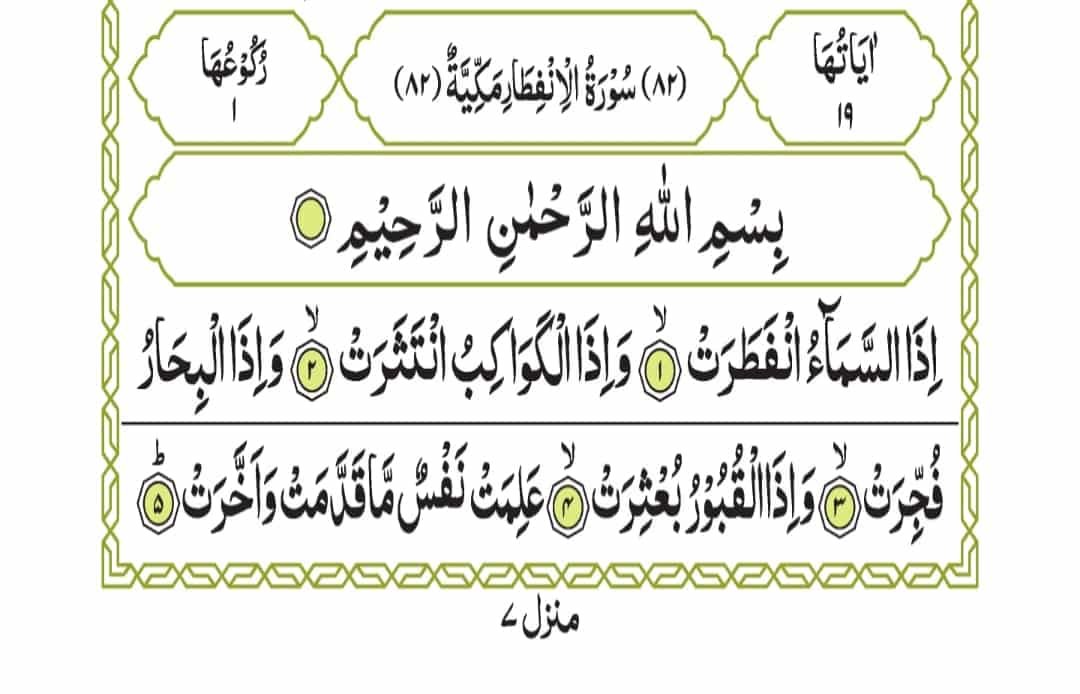 اٰيَاتُهَا ١٩ (٨٢) سُوْرَةُ الْاِنْفِطَارِ مَكِّيَّةٌ (٨٢) رُكُوْعُهَا ١
بِسْمِ اللّٰهِ الرَّحْمٰنِ الرَّحِيْمِ
اِذَا السَّمَآءُ انْفَطَرَتْ ۙ ١ وَاِذَا الْكَوَاكِبُ انْتَثَرَتْ ۙ ٢ وَاِذَا الْبِحَارُ
فُجِّرَتْ ۙ ٣ وَاِذَا الْقُبُوْرُ بُعْثِرَتْ ۙ ۴ عَلِمَتْ نَفْسٌ مَّا قَدَّمَتْ وَاَخَّرَتْ ؕ ۵
منزل ٧